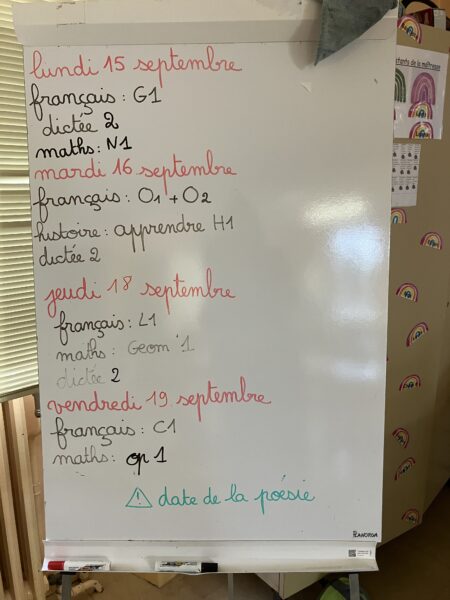 lundi 15 septembre
français : G1
dictée 2
maths : N1
mardi 16 septembre
français : O1 + O2
histoire : apprendre H1
dictée 2
jeudi 18 septembre
français : L1
maths : Geom 1
dictée 2
vendredi 19 septembre
français : C1
maths : op 1
date de la poésie
stants de la maîtresse